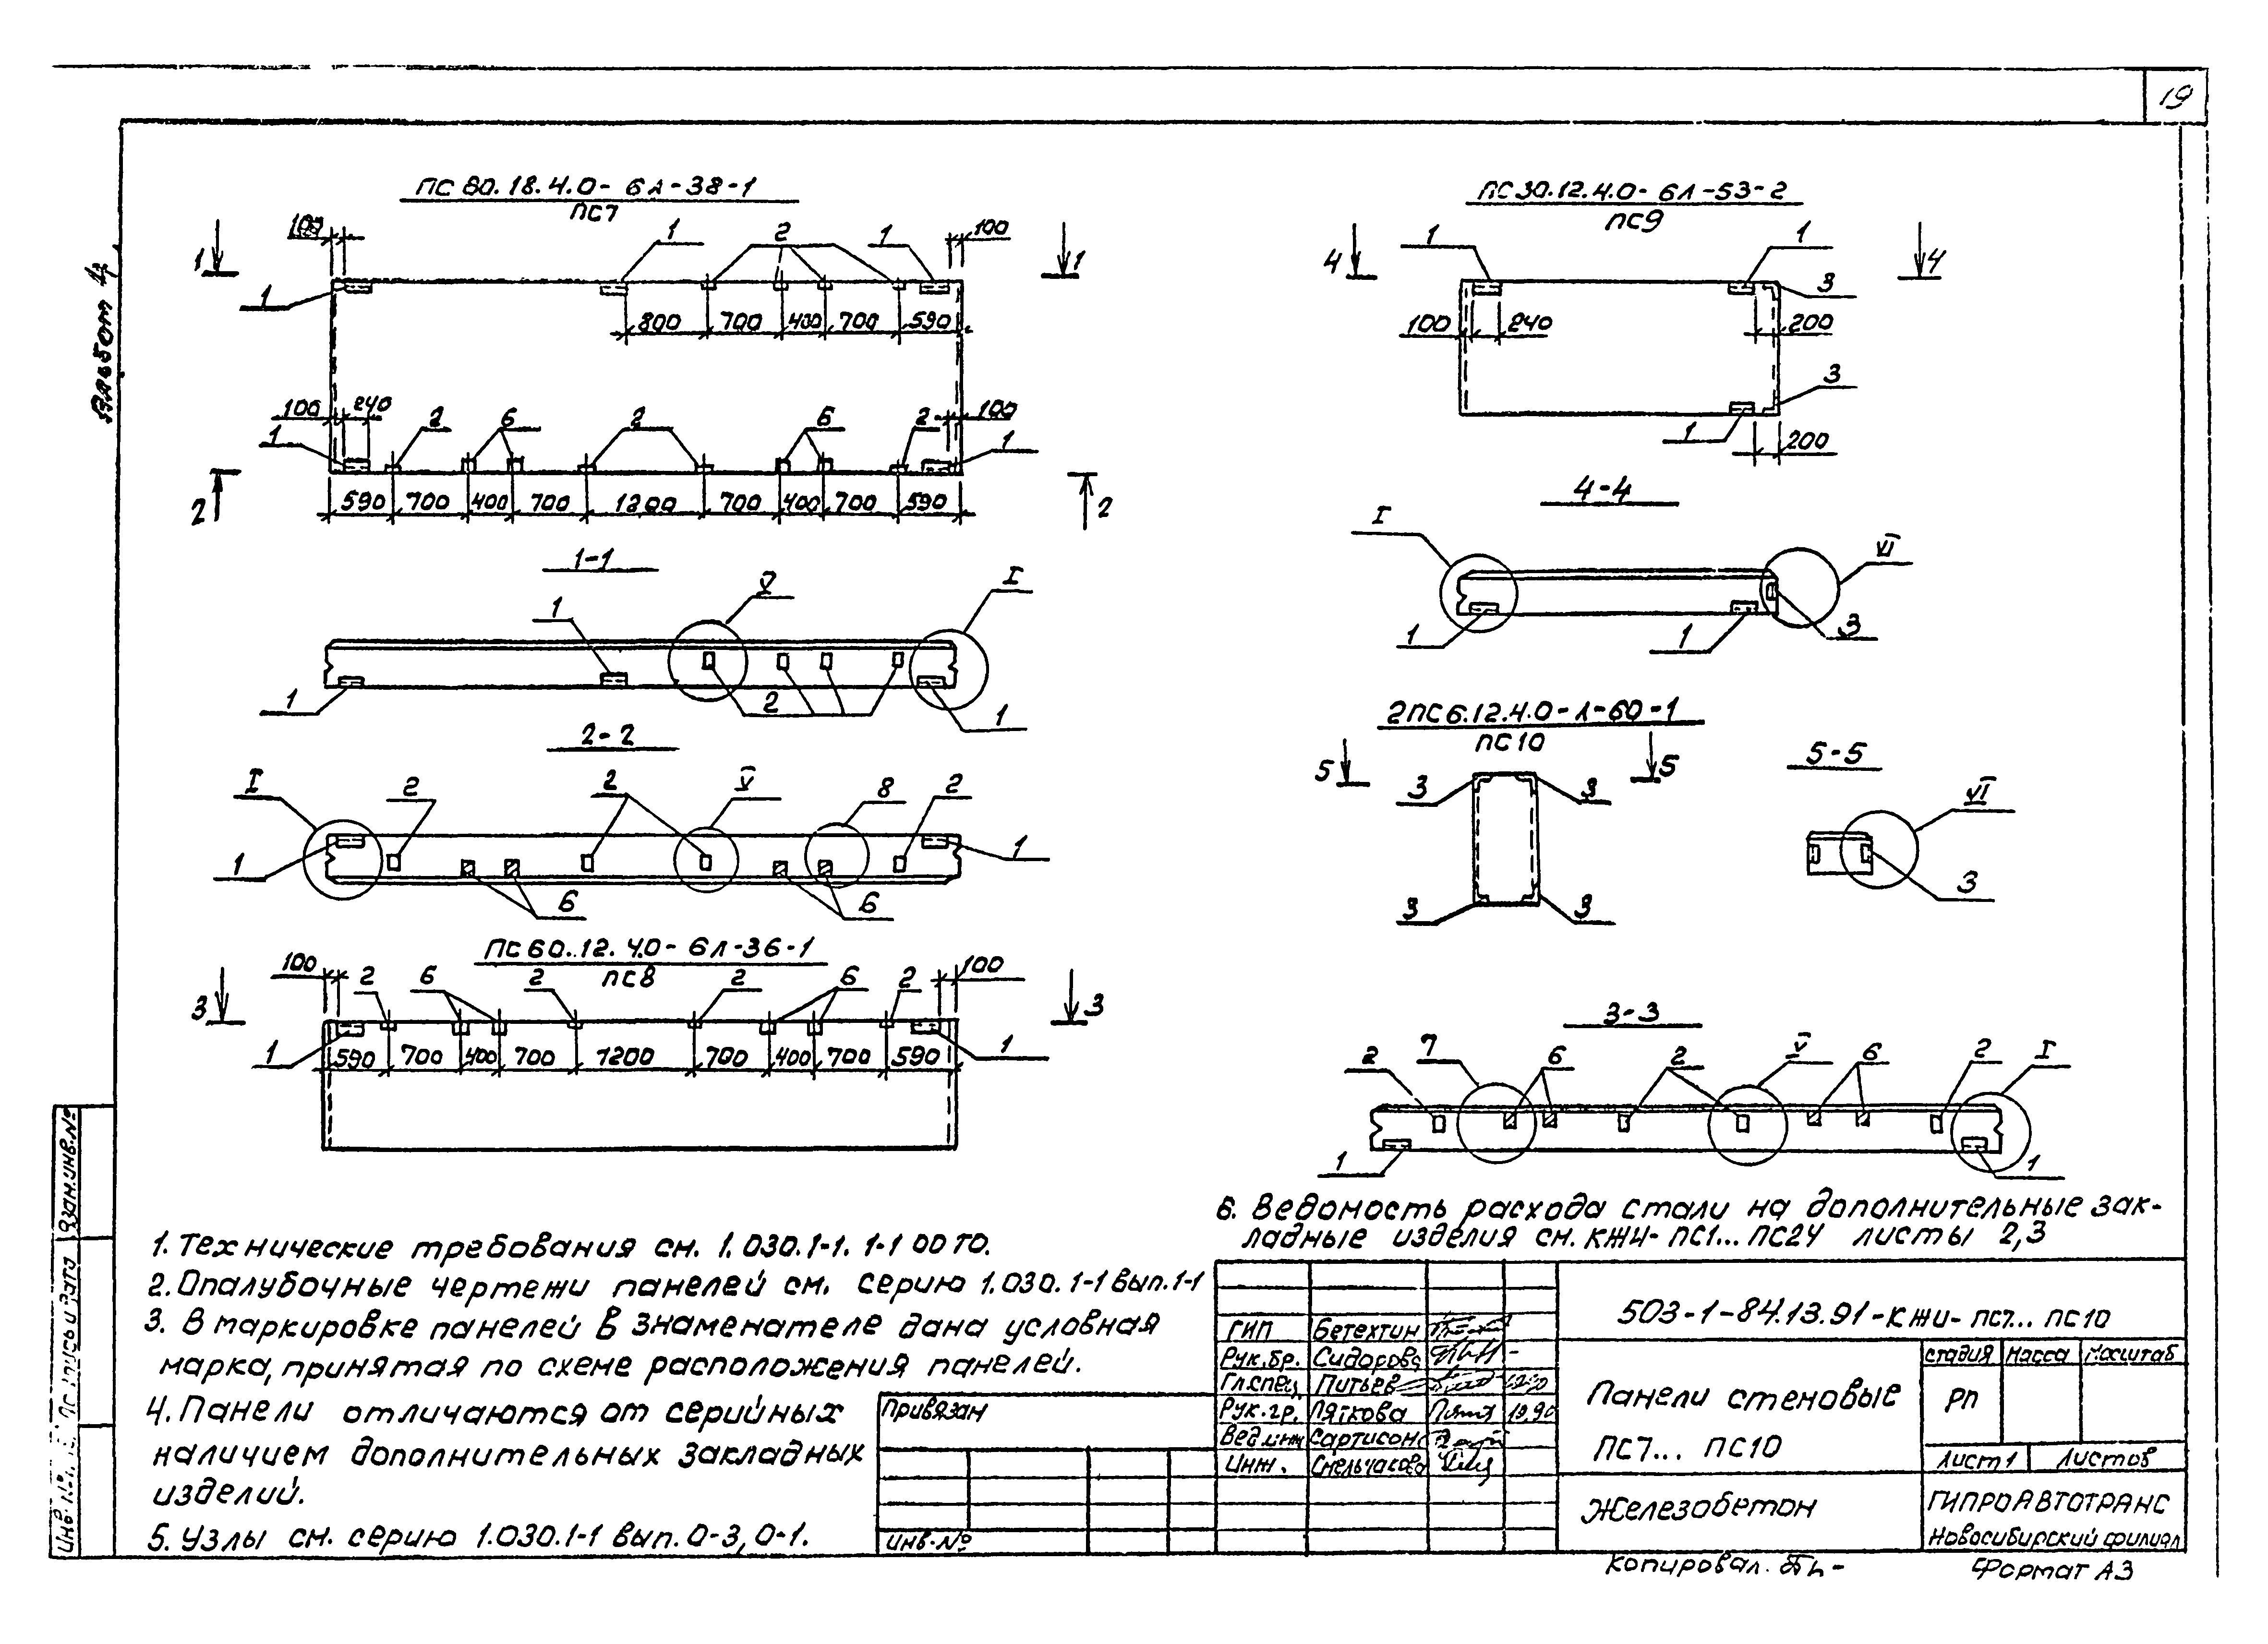 19
Альбом 4
ПС 80.18.4.0- 6л-38-1
ПС7
100
1
2
1
100
1
1
1
800
700
400
700
590
100
240
2
6
2
6
2
100
1
1
2
590
700
400
700
1200
700
400
700
590
2
1-1
V
I
1
1
2
1
2-2
I
2
2
V
8
2
1
1
6
6
ПС60.12.4.0- 6л-36-1
ПС8
100
2
6
2
2
6
2
100
3
3
1
590
700
400
700
1200
700
400
700
590
1
ПС30.12.4.0- 6л-53-2
ПС9
4
1
1
4
3
100
240
200
3
1
200
4-4
I
VI
1
1
3
2ПС6.12.4.0-л-60-1
ПС10
5
5
3
3
3
3
5-5
VI
3
3-3
2
7
6
2
V
6
2
I
1
1
1. Технические требования см. 1.030.1-1. 1-1 00 ТО.
2. Опалубочные чертежи панелей см. серию 1.030.1-1 вып.1-1
3. В маркировке панелей в знаменателе дана условная
марка, принятая по схеме расположения панелей.
4. Панели отличаются от серийных
наличием дополнительных закладных
изделий.
5. Узлы см. серию 1.030.1-1 вып. 0-3, 0-1.
6. Ведомость расхода стали на дополнительные зак-
ладные изделия см. КЖИ- ПС1... ПС24 листы 2,3
Привязан
Инв.№
ГИП Бетехтин
Рук.бр. Сидорова
Гл.спец. Питьев
Рук.гр. Пяткова 10.90
Вед.инж Сартисон
Инж. Смельчакова
503-1-84.13.91-КЖИ- ПС7... ПС10
Панели стеновые
ПС7... ПС10
Стадия Масса Масштаб
РП
Лист 1 Листов
Железобетон
ГИПРОАВТОТРАНС
Новосибирский филиал
Копировал.
Формат А3
Взам.инв.№